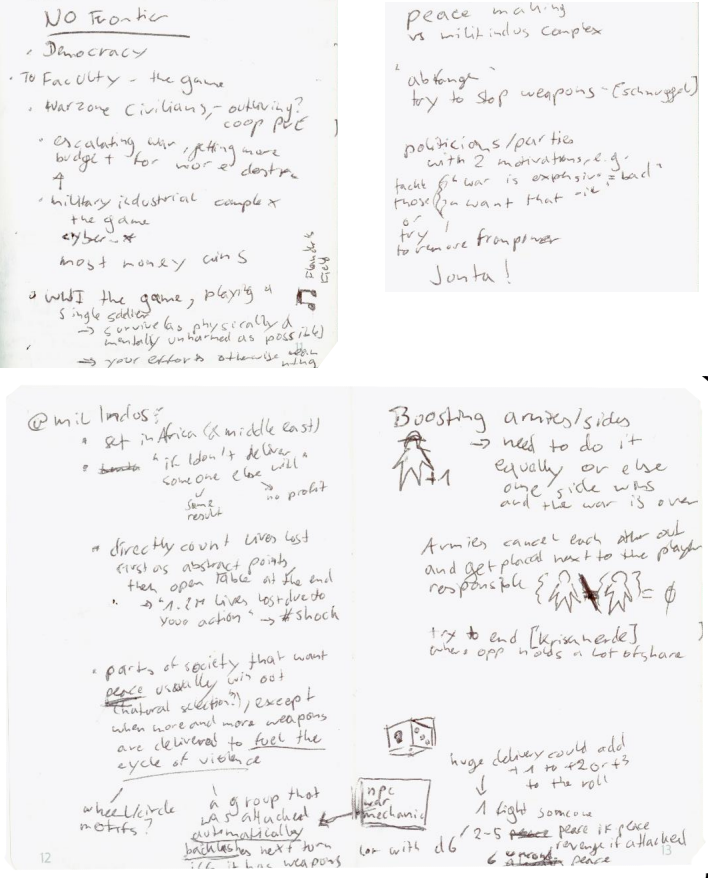 NO Frontier
• Democracy
• To Faculty - the game
• warzone civilians, - outliving?
coop PvE
• escalating war, getting more
budget for more destru
• military industrial complex
the game
cyber-*
most money wins
• WWI the game, playing a
single soldier
→ survive (as physically &
mentally unharmed as possible)
→ your efforts otherwise mean
nothing
peace making
vs milit indus complex
"abfange"
try to stop weapons - [schmuggel]
politicians/parties
with 2 motivations, e.g.
"war is expensive = bad"
those want that
or
try
to remove from power
Junta!
@mil Indus:
• set in Africa (& middle east)
• "if I don't deliver
someone else will"
same
result
no profit
• directly count lives lost
first as abstract points,
then open table at the end
→ "1.2M lives lost due to
your action" → #shock
• parts of society that want
peace usually win out
(natural selection?), except
when more and more weapons
are delivered to fuel the
cycle of violence
wheel/circle
motifs?
a group that
was attacked
automatically
backlashes next turn
iff it has weapons
12
Boosting armies/sides
+1
→ need to do it
equally or else
one side wins
and the war is over
Armies cancel each other out
and get placed next to the player
responsible
= ∅
try to end [Krisenherde]
where opp holds a lot of share
huge delivery could add
+1 to +2 or +3
to the roll
npc
war
mechanic
war with d6
1 fight someone
2-5 peace if peace
revenge if attacked
6 peace
13